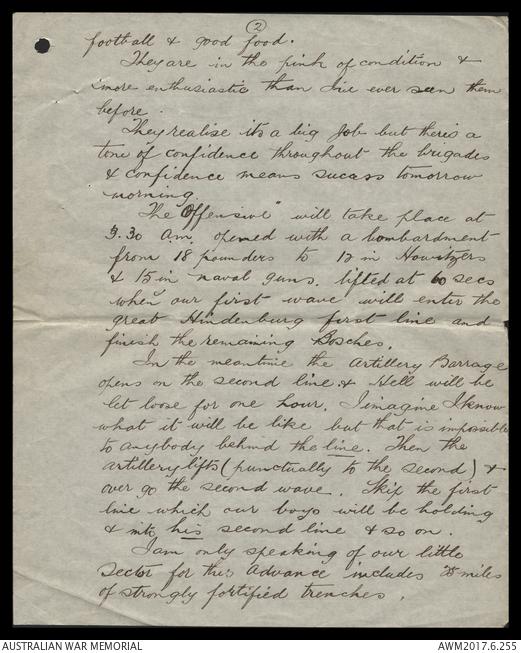 (2)
football & good food.
They are in the pink of condition &
more enthusiastic than I've ever seen them
before.
They realise its a big job but there's a
tone of confidence throughout the brigades
& confidence means sucess tomorrow
morning.
The "Offensive" will take place at
3.30 a.m. opened with a bombardment
from 18 pounders to 12 in Howitzers
& 15 in naval guns. lifted at 60 secs
when our first wave will enter the
great Hindenburg first line and
finish the remaining Bosches.
In the meantime the Artillery Barrage
opens on the second line & Hell will be
let loose for one hour. I imagine I know
what it will be like but that is impossible
to anybody behind the line. Then the
artillery lifts (punctually to the second) &
over go the second wave. Skip the first
line which our boys will be holding
& into his second line & so on.
I am only speaking of our little
Sector for this Advance includes miles
of strongly fortified trenches.
AUSTRALIAN WAR MEMORIAL
AWM2017.6.255